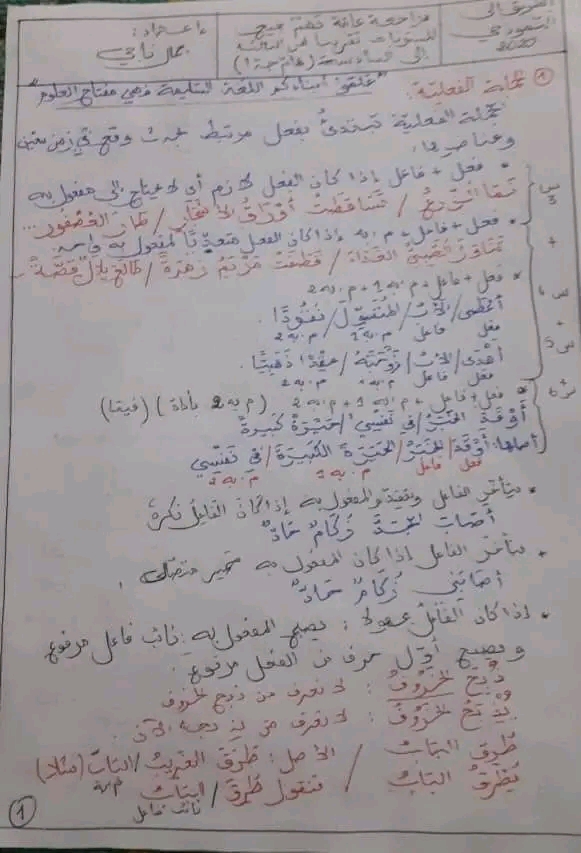 مراجعة عامة تهم جميع
المستويات تقريبا من الثالثة
إلى السادسة
إعداد:
2020
"علموا أبناءكم اللغة السليمة فهي مفتاح العلوم"
① الجملة الفعلية:
الجملة الفعلية تبتدئ بفعل مرتبط بحدث وقع في زمن معين
وعناصرها:
* فعل + فاعل إذا كان الفعل لازم أي لا يحتاج إلى مفعول به
نما الزرع / تساقطت أوراق الأشجار / طار العصفور...
* فعل + فاعل + م.به إذا كان الفعل متعديًا لمفعول به واحد
تناول الغداء / قطفت مريم زهرة / طالع بلال قصة
* فعل + فاعل + م.به 1 + م.به 2
أعطى / الأب / المتسول / نقودًا.
فعل فاعل م.به 1 م.به 2
أهدى / الأب / زوجته / عقدًا ذهبيًا.
فعل فاعل م.به م.به 2
* فعل + فاعل + م.به 1 + م.به 2 (م.به 2 بأداة)
أوقد / في نفسي / كبيرة
أصلها: أوقد / الكبيرة / في نفسي
فعل فاعل م.به م.به 2
* يتأخر الفاعل ويتقدم المفعول به إذا كان الفاعل نكرة
أصاب الجد زكام حاد
* يتأخر الفاعل إذا كان المفعول به ضمير متصل
أصابني زكام حاد
* إذا كان الفاعل مجهولا: يصبح المفعول به نائب فاعل مرفوع
ويصبح أول حرف من الفعل مرفوع.
ذُبح الخروف: لا نعرف من ذبح الخروف
يُذبح الخروف: لا نعرف من الآن.
طُرق الباب الأصل: طرق الغريب / الباب (مثلا)
م.به
يُطرق الباب / فنقول طُرق / الباب
نائب فاعل
①